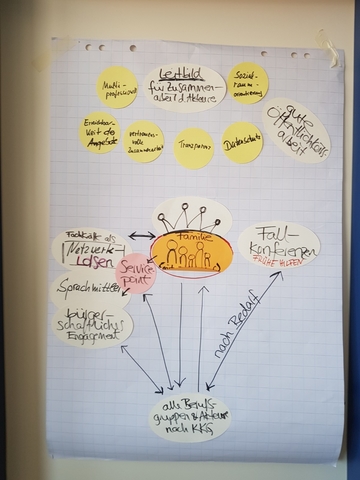 Multi-
professionell
Leitbild
für Zusammen-
arbeit d. Akteure
Sozial-
raum-
orientierung
gute
Öffentlichkeits
arbeit
Erreichbar-
keit der
Angebote
vertrauens-
volle
Zusammenarbeit
Transparenz
Datenschutz
Fachkräfte als
Netzwerk-
Lotsen
Familie
Service
point
Sprachmittler
bürger-
schaftliches
Engagement
Fall-
konferenzen
FRÜHE HILFEN
nach Bedarf
alle Berufs-
gruppen & Akteure
nach KKG